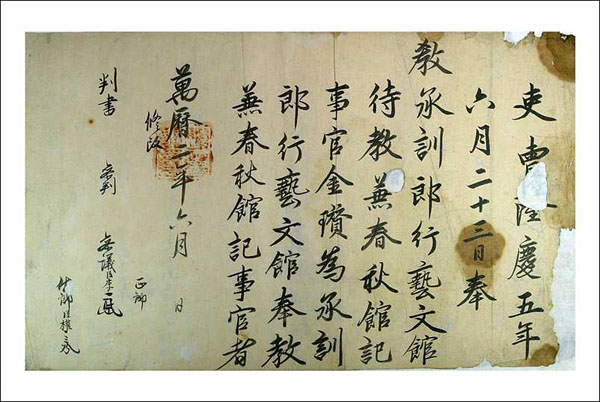 吏曹隆慶五年
六月二十三日奉
教承訓郎行藝文館
待教兼春秋館記
事官金為承訓
郎行藝文館奉教
兼春秋館記事官者
萬曆二年六月 日
修改
判書 參判 參議臣李
正郎
佐郎臣權